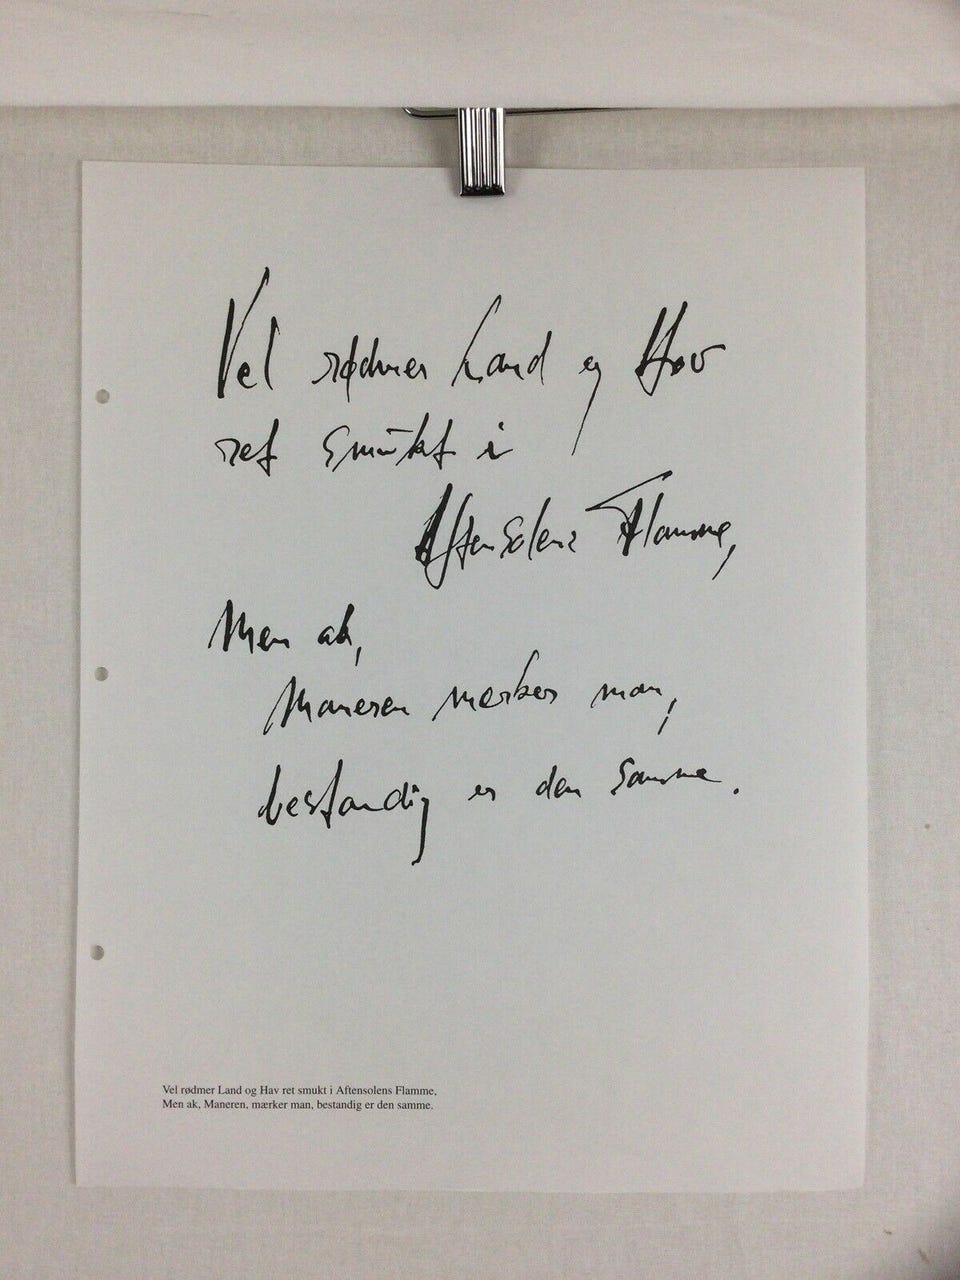 Vel rødmer Land og Hav
ret smukt i
Aftensolens Flamme,
Men ak,
Maneren mærker man,
bestandig er den samme.
Vel rødmer Land og Hav ret smukt i Aftensolens Flamme,
Men ak, Maneren, mærker man, bestandig er den samme.